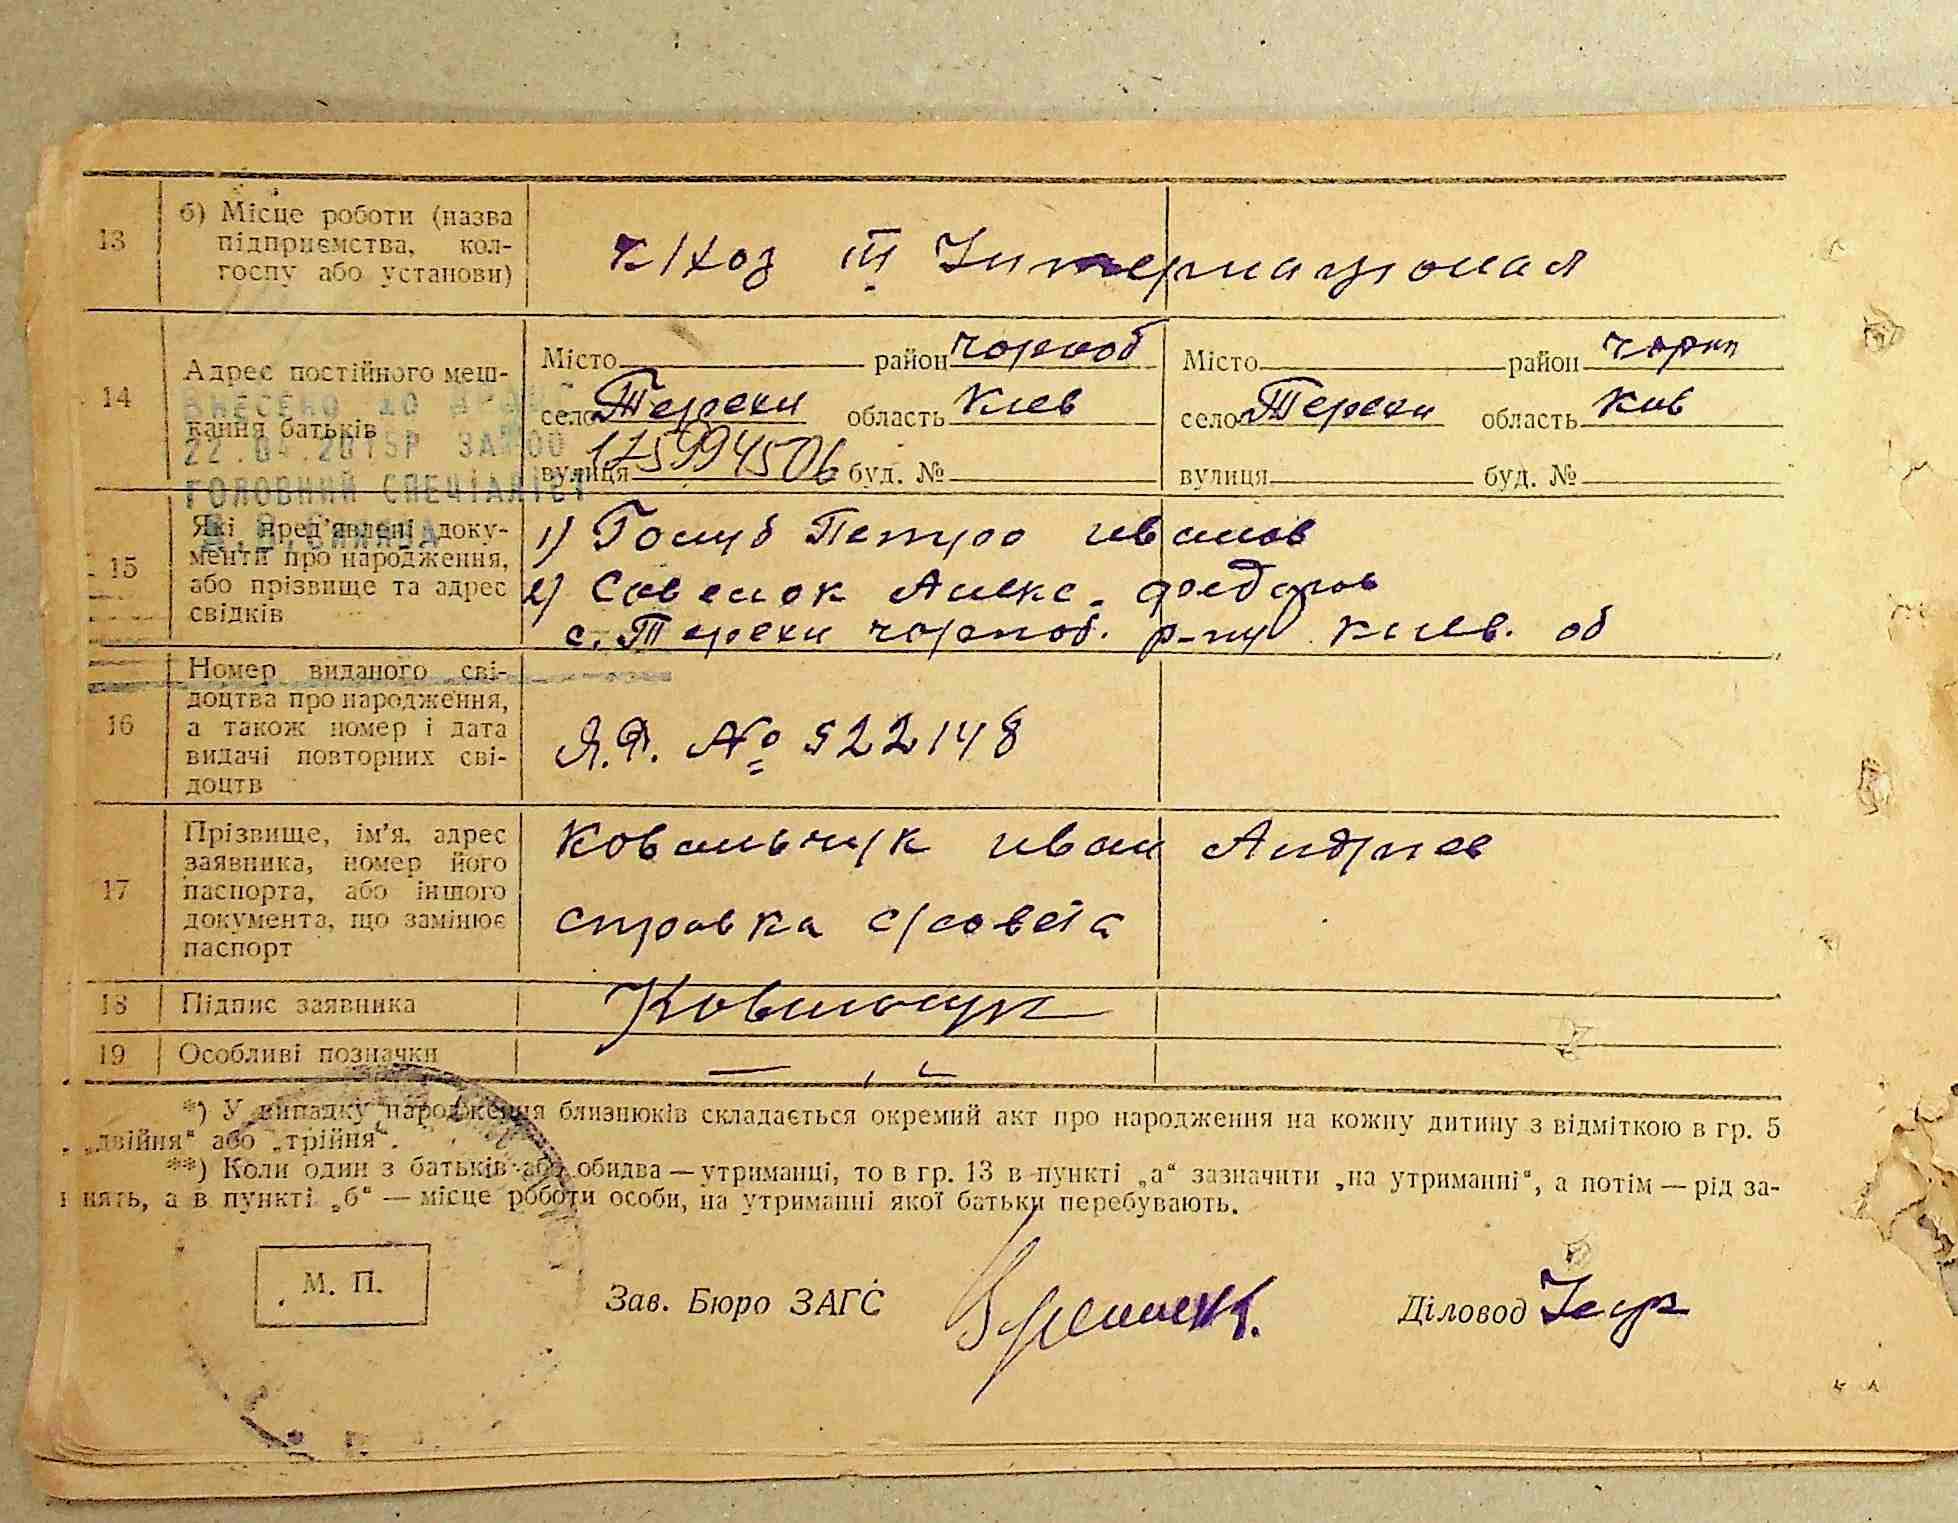 13
б) Місце роботи (назва
підприємства, кол-
госпу або установи)
к/хоз III Інтернаціонал
14
Адрес постійного меш-
кання батьків
Місто район Чорноб
село Терехи область Киев
вулиця буд. №
Місто район Чорн
село Терехи область Кив
вулиця буд. №
175994506
ВНЕСЕНО ДО
22.04.2015Р ЗА
ГОЛОВНИЙ СПЕЦІАЛІСТ
15
Які пред'явлені доку-
менти про народження,
або прізвище та адрес
свідків
1) Голуб Петро иванов
2) Савенок Алекс. федоров
с. Терехи чорноб. р-ну киев. об
16
Номер виданого сві-
доцтва про народження,
а також номер і дата
видачі повторних сві-
доцтв
Я.Ф. № 522148
17
Прізвище, ім'я, адрес
заявника, номер його
паспорта, або іншого
документа, що замінює
паспорт
Ковальчук иван Андриев
справка с/совета
18
Підпис заявника
Ковальчук
19
Особливі позначки
*) У випадку народження близнюків складається окремий акт про народження на кожну дитину з відміткою в гр. 5
„двійня“ або „трійня“.
**) Коли один з батьків або обидва — утриманці, то в гр. 13 в пункті „а“ зазначити „на утриманні“, а потім — рід за-
нять, а в пункті „б“ — місце роботи особи, на утриманні якої батьки перебувають.
М. П.
Зав. Бюро ЗАГС
Діловод